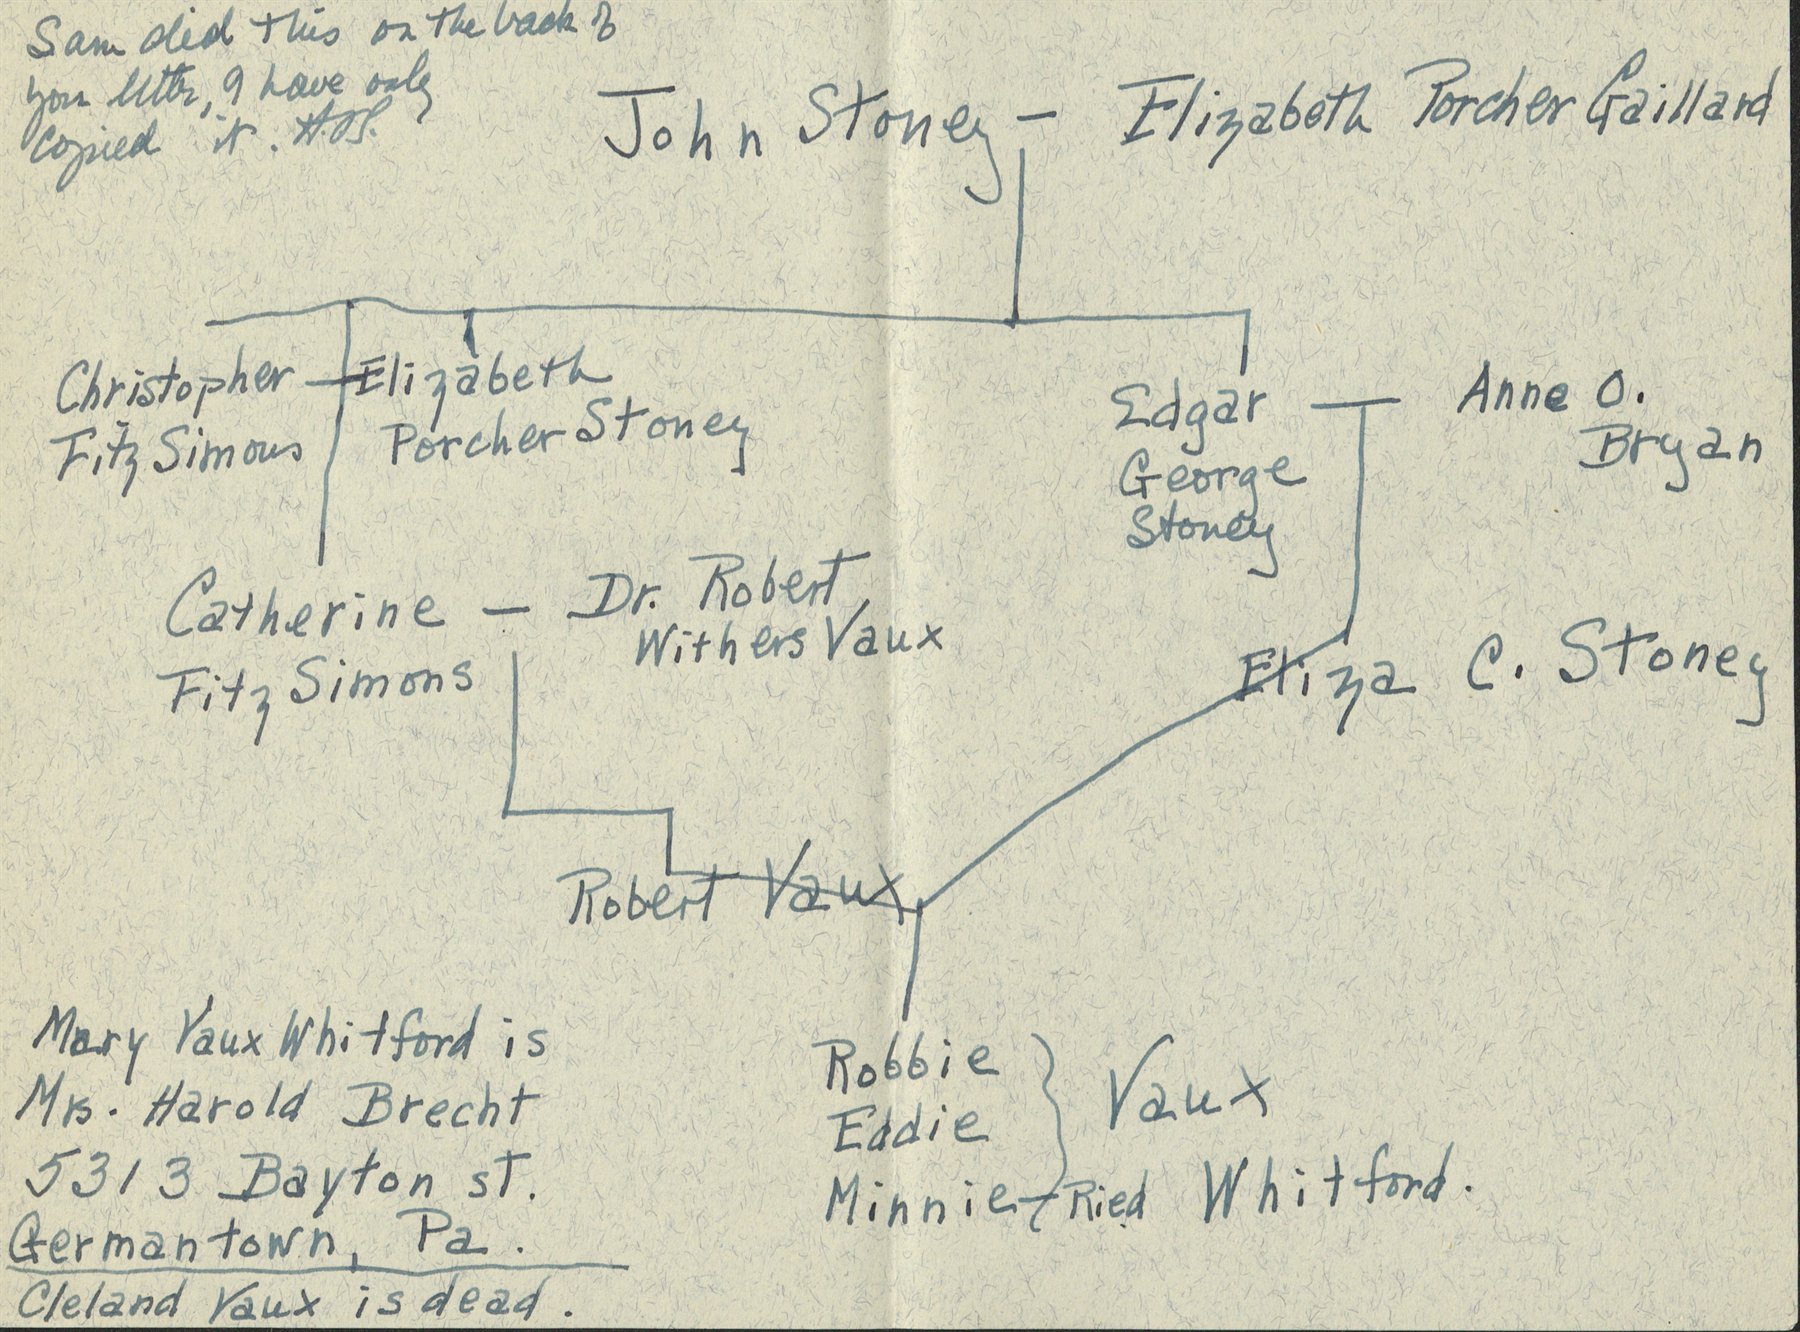 Sam did this on the back of
your letter, I have only
copied it.
John Stoney — Elizabeth Porcher Gaillard
Christopher — Elizabeth
FitzSimons Porcher Stoney
Edgar — Anne O.
George Bryan
Stoney
Catherine — Dr. Robert
FitzSimons Withers Vaux
Eliza C. Stoney
Robert Vaux
Robbie
Eddie } Vaux
Minnie — Ried Whitford.
Mary Vaux Whitford is
Mrs. Harold Brecht
5313 Bayton st.
Germantown, Pa.
Cleland Vaux is dead.